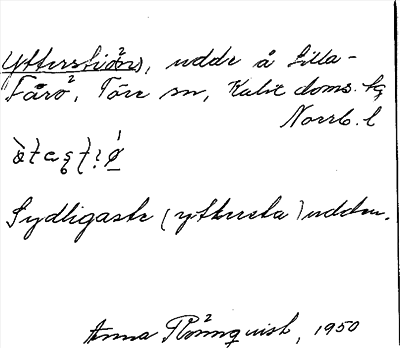 udde å Lilla-
Fårö, Töre sn, Kalix doms. tg
Norrb. l
Sydligaste (yttersta) udden.
Anna Rönnquist, 1950